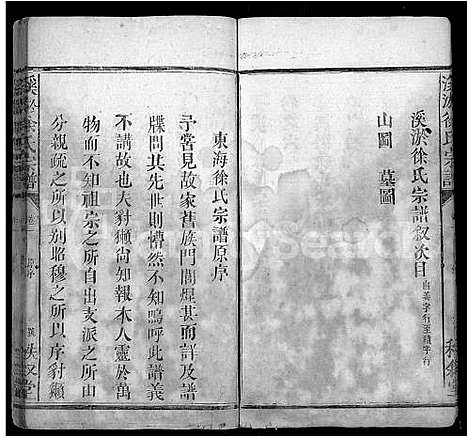 溪淤徐氏宗譜
溪淤徐氏宗譜叙次目 自美字行至積字行
山圖 墓圖
東海徐氏宗譜原序
予嘗見故家舊族門閭焜甚而詳及譜
牒問其先世則懵然不知嗚呼此譜義
不講故也夫豺獺尚知報本人靈於萬
物而不知祖宗之所自出支派之所由
分親疏之所以别昭穆之所以序豺獺
溪淤徐氏宗譜